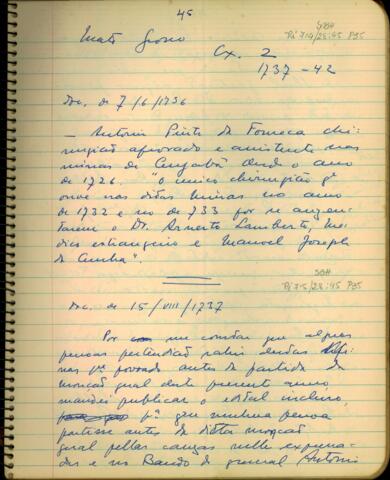 45
SBH
Pi 74/28:45 P95
Mato Grosso
Cx. 2
1737-42
Doc. de 7/6/1736
– Antonio Pinto da Fonseca chi-
rurgião aprovado e asistente nas
minas de Cuyabá desde o anno
de 1726. "O unico chirurgião q̃
ouve nas ditas minas no anno
de 1732 e no de 733 por se auzen-
tarem o Dr. Arnesto Lamberto, me-
dico estrangeiro e Manoel Joseph
da Cunha".
SBH
Pi 75/28:45 P95
Doc. de 15/VIII/1737
Por me constar que algũas
pessoas pertendião sahir destas Mi-
nas pª povoado antes da partida da
monção geral deste prezente anno,
mandei publicar o edital incluzo,
pª que nenhuma pessoa
partisse antes da dicta monção
geral pellas cauzas nelle expressa-
das e no Bando do general Antonio